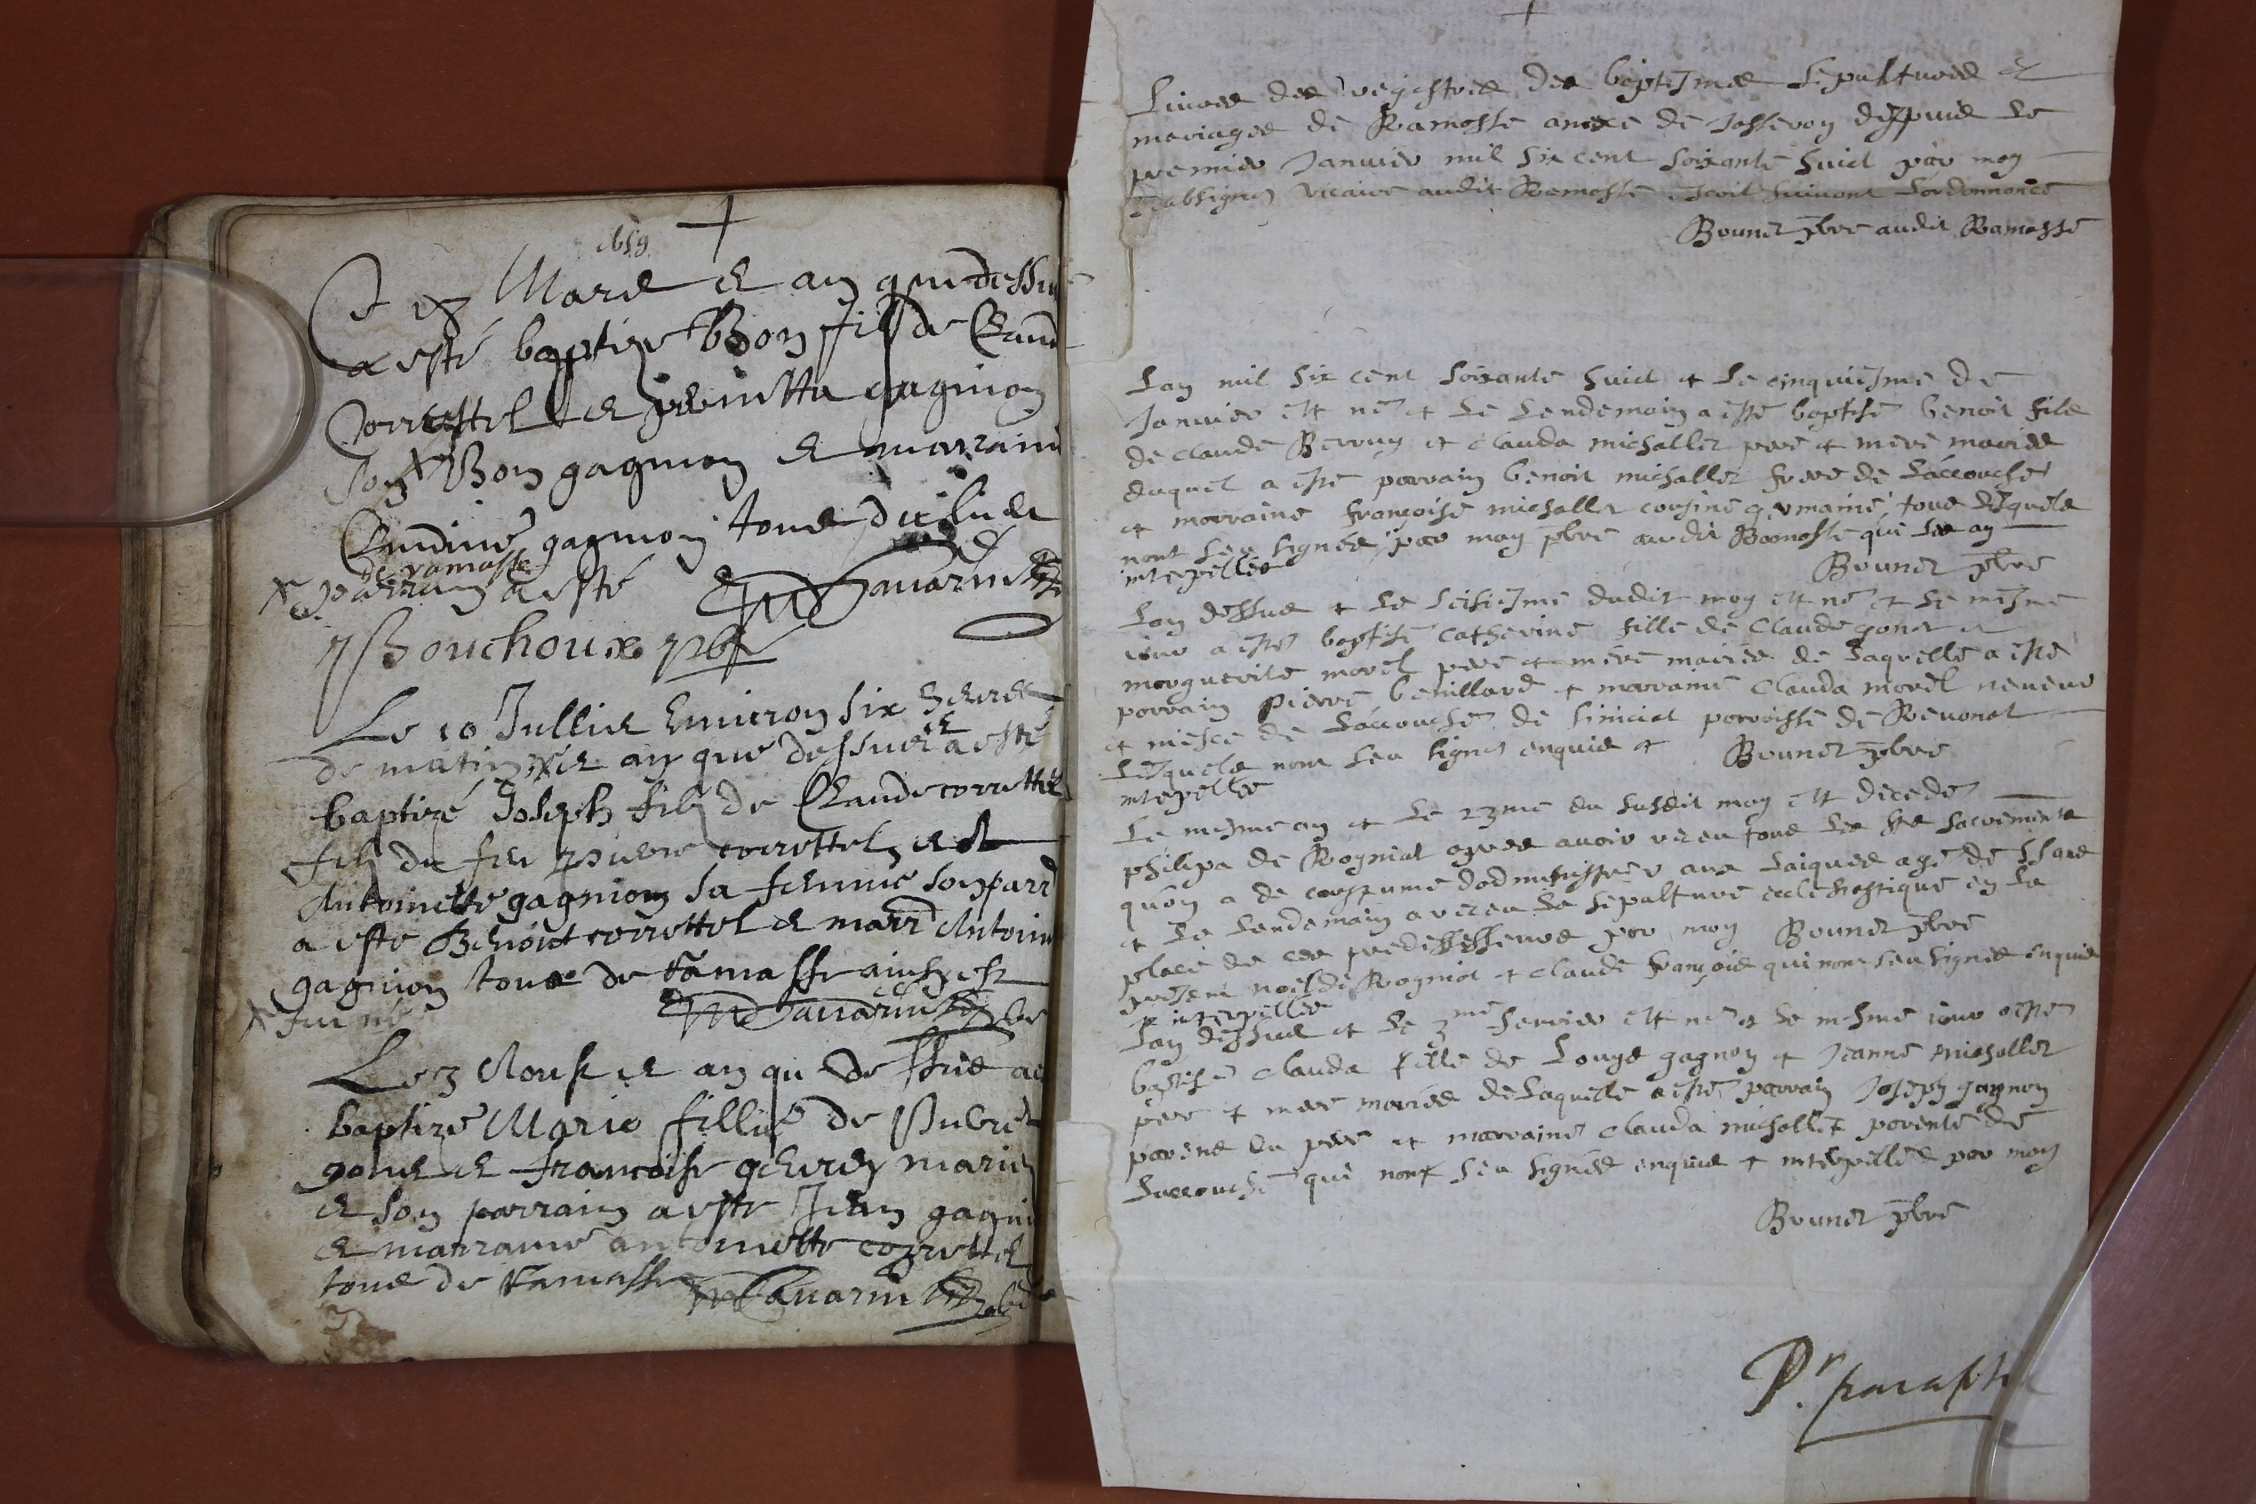 1659
Ce Mars et an que dessus
a esté baptize Bon fils de Claud
Correttel et pernette gagnion
son + Bon gagnion et marraine
Claudine gagnion tous dudit lieu
de ramasse
+ parrain a esté Savarin
Bouchoux pbr
Le 10 Jullier environ six heures
de matin + et an que dessus et a esté
baptizé Joseph filz de Claude correttel
filz du feu pierre correttel et
Antoinette gagnion sa femme son parr
a esté Benoict correttel et marr Antoin
gagnion tous de ramasse ainsy est
+ Savarin pbr
Le 3 Aoust et an que dessus a
baptizé Marie fillie de
gonet et francoise mariez
et son parrain a esté Jean gagni
et marraine antoinette correttel
tous de ramasse Savarin pbr
Livres des registres des baptesmes sepultures et
mariages de Ramasse anexe de Josseron depuis le
premier Janvier mil six cent soixante huict par moy
soubsigné vicaire audit Ramasse escrit suivant lordonnance
Bounet pbre audit Ramasse
Lan mil six cent soixante huict et le cinquiesme de
Janvier est né et le lendemain a esté baptisé benoit fils
de claude et clauda michallet pere et mere mariés
duquel a esté parrain benoit michallet frere de laccouchée
et marraine françoise michallet cousine germaine, tous lesquels
nont sceu signer, par moy pbre audit Ramasse que les ay
interpellés Bounet pbre
Lan dessus et le seisiesme dudit moy est né et le mesme
iour a esté baptisé Catherine fille de Claude gonet et
marguerite morel pere et mere mariés de laquelle a esté
parrain pierre et marraine Clauda morel neveu
et niesce de laccouchée de paroisse de Revonat
Lesquels nont sceu signer enquis et Bounet pbre
interpellés
Le mesme an et le 23me du susdit moy est decedé
philipa de Rogniat apres avoir receu tous les sts sacrements
quon a de coustume dadministrer aux laiques agé de ans
et le lendemain a receu la sepulture ecclesiastique en la
place de ces predessesseurs par moy Bounet pbre
present noel de Rogniat et claude françois qui nont sceu signer enquis
et interpellés
Lan dessus et le 3me fevrier est né et le mesme iour a esté
baptisé clauda fille de Louys gagnon et Jeanne michallet
pere et mere mariés de laquelle a esté parrain Joseph gagnon
parent du pere et marraine clauda michallet parente de
laccouchée qui nont sceu signer enquis et interpellés par moy
Bounet pbre
Pr paraphe